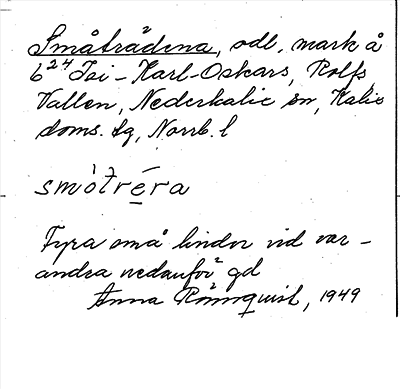 Småträdena, odl. mark å
6²⁴ Isi-Karl-Oskars, Rolfs,
Vallen, Nederkalix sn, Kalix
doms. tg, Norrb. l
smòtréra
Fyra små lindor vid var-
andra nedanför gd
Anna Rönnquist, 1949